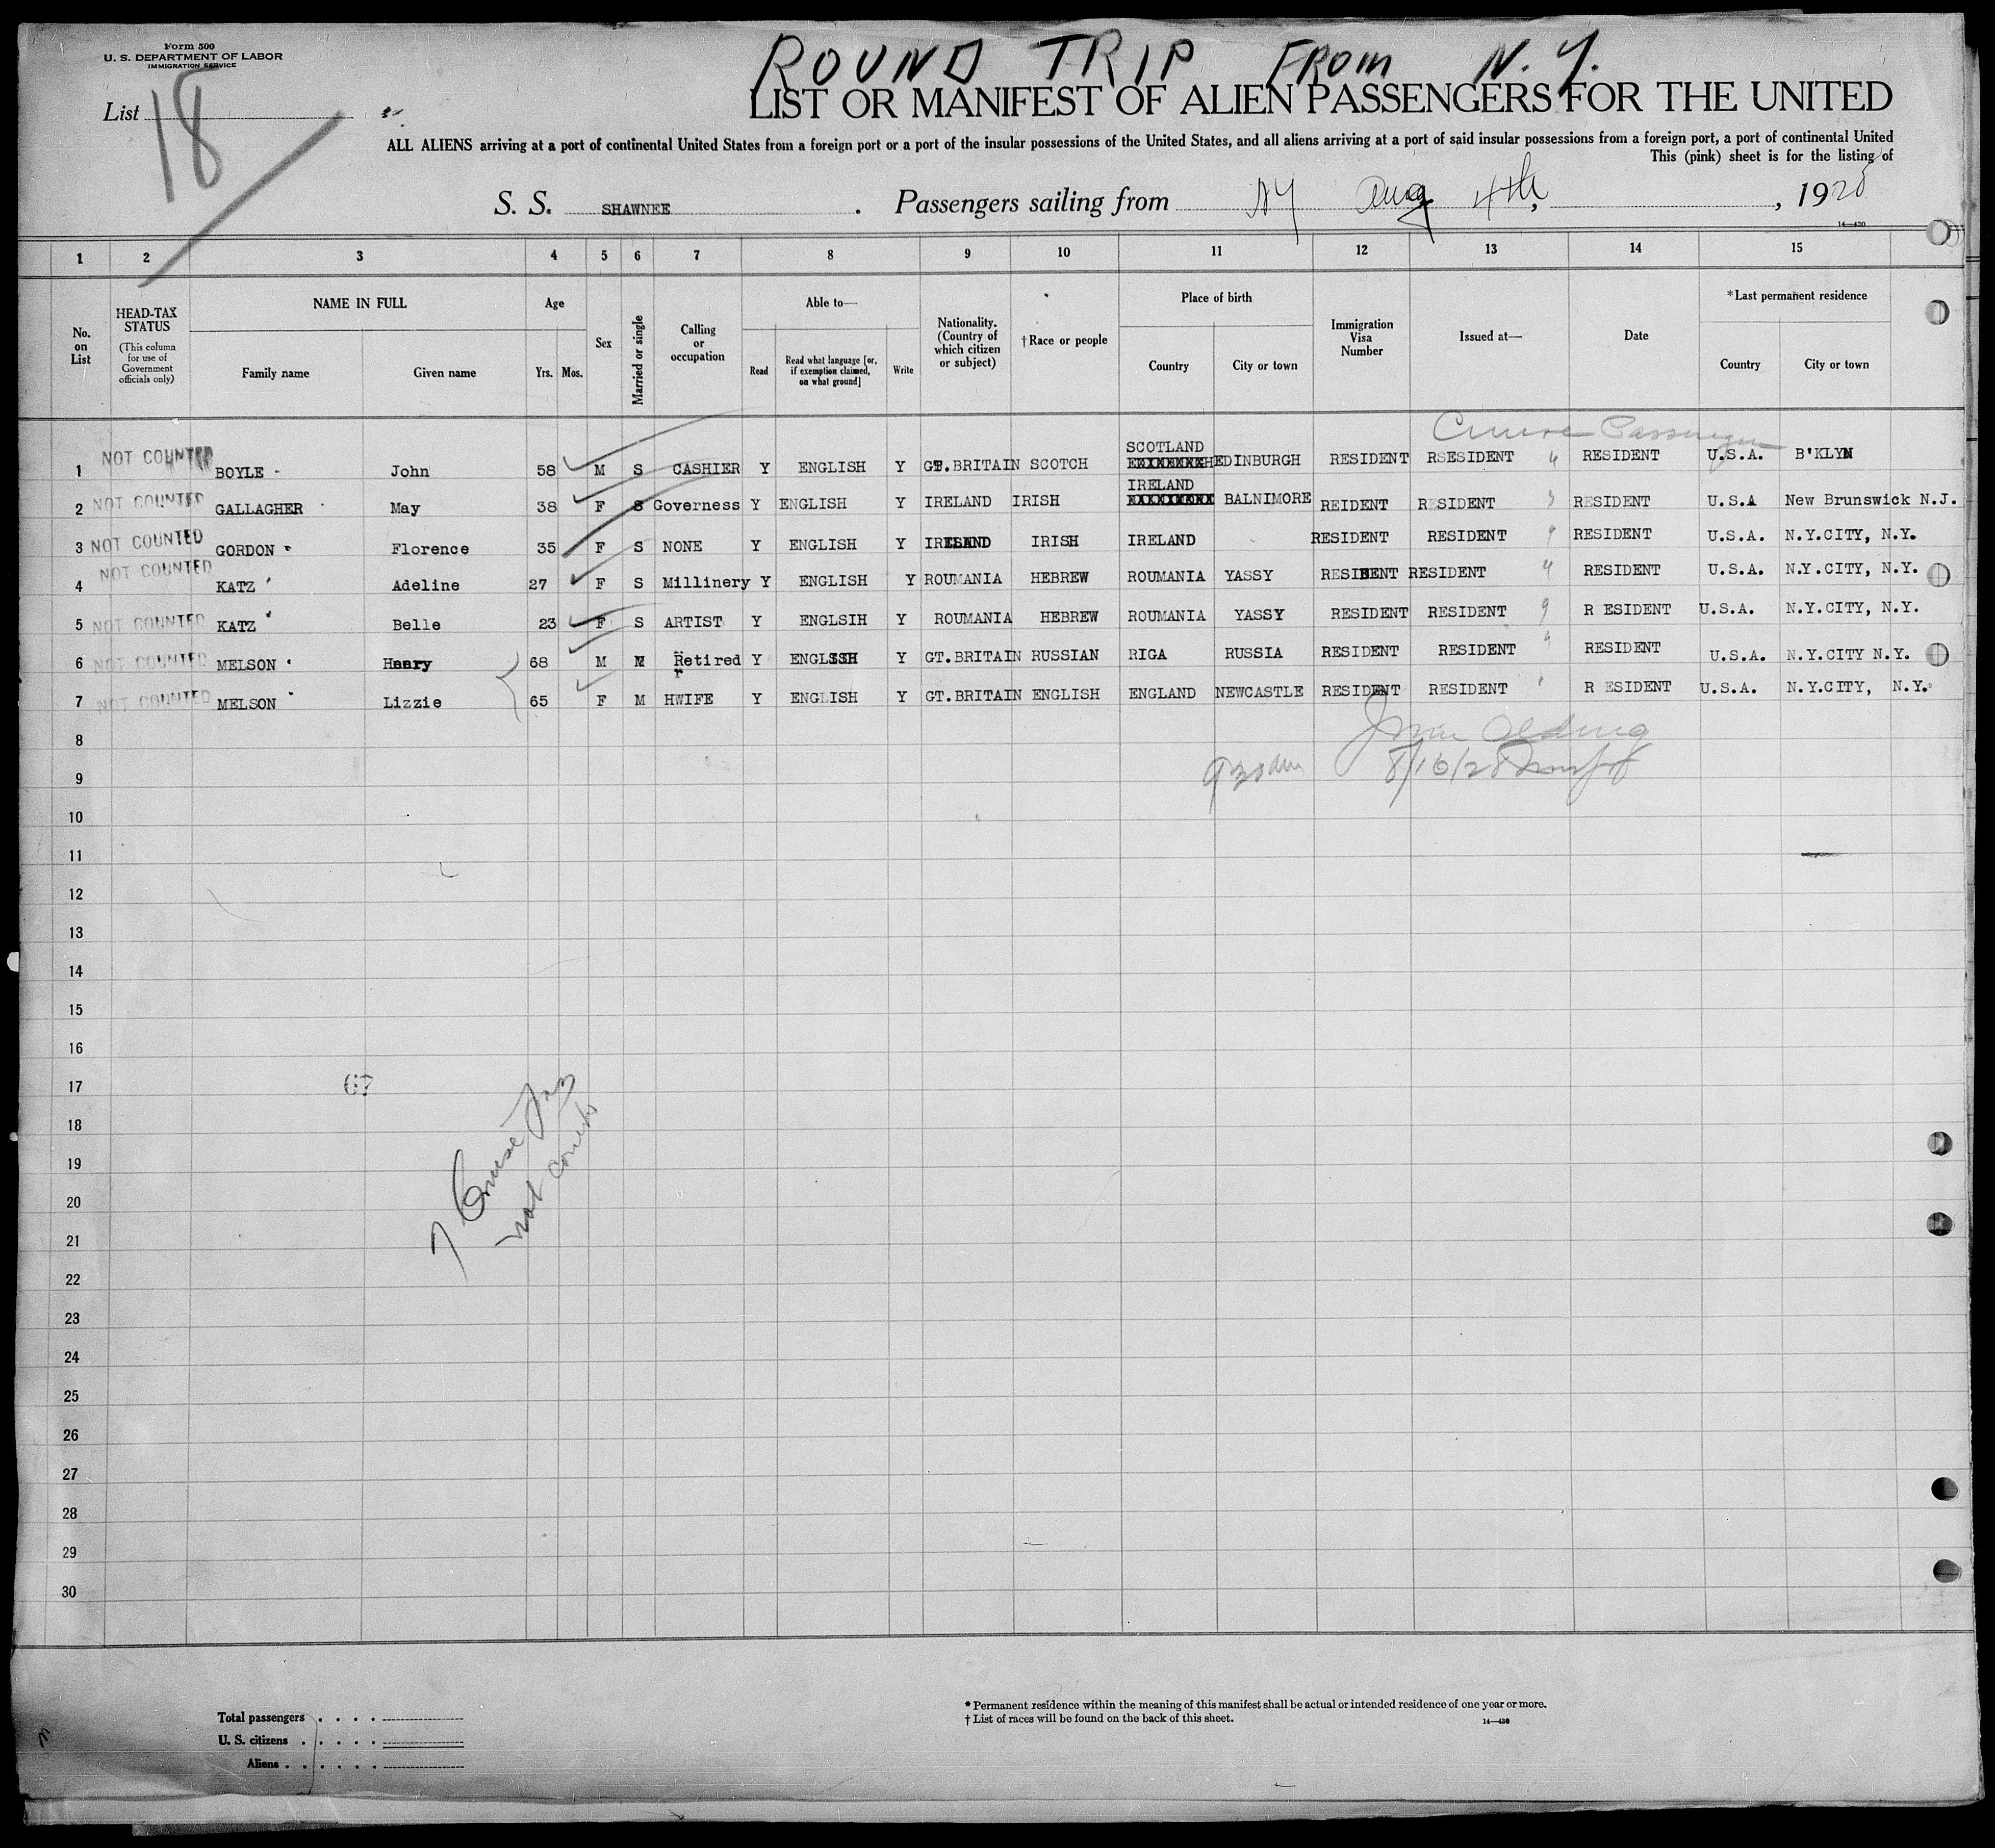 Form 500
U. S. DEPARTMENT OF LABOR
IMMIGRATION SERVICE
ROUND TRIP FROM N.Y.
List 18
LIST OR MANIFEST OF ALIEN PASSENGERS FOR THE UNITED
ALL ALIENS arriving at a port of continental United States from a foreign port or a port of the insular possessions of the United States, and all aliens arriving at a port of said insular possessions from a foreign port, a port of continental United
This (pink) sheet is for the listing of
S. S. SHAWNEE . Passengers sailing from NY Aug 4th, , 1928
14—430
1 2 3 4 5 6 7 8 9 10 11 12 13 14 15
No. on List
HEAD-TAX STATUS (This column for use of Government officials only)
NAME IN FULL Family name Given name
Age Yrs. Mos.
Sex
Married or single
Calling or occupation
Able to— Read Read what language [or, if exemption claimed, on what ground] Write
Nationality. (Country of which citizen or subject)
†Race or people
Place of birth Country City or town
Immigration Visa Number
Issued at—
Date
*Last permanent residence Country City or town
Cruise Passenger
1 NOT COUNTED BOYLE John 58 M S CASHIER Y ENGLISH Y GT.BRITAIN SCOTCH SCOTLAND EDINBURGH RESIDENT RSESIDENT RESIDENT U.S.A. B'KLYN
2 NOT COUNTED GALLAGHER May 38 F S Governess Y ENGLISH Y IRELAND IRISH IRELAND BALNIMORE REIDENT RESIDENT RESIDENT U.S.A New Brunswick N.J.
3 NOT COUNTED GORDON Florence 35 F S NONE Y ENGLISH Y IRELAND IRISH IRELAND RESIDENT RESIDENT RESIDENT U.S.A. N.Y.CITY, N.Y.
4 NOT COUNTED KATZ Adeline 27 F S Millinery Y ENGLISH Y ROUMANIA HEBREW ROUMANIA YASSY RESIDENT RESIDENT RESIDENT U.S.A. N.Y.CITY, N.Y.
5 NOT COUNTED KATZ Belle 23 F S ARTIST Y ENGLSIH Y ROUMANIA HEBREW ROUMANIA YASSY RESIDENT RESIDENT R ESIDENT U.S.A. N.Y.CITY, N.Y.
6 NOT COUNTED MELSON Henry 68 M M Retired Y ENGLISH Y GT.BRITAIN RUSSIAN RIGA RUSSIA RESIDENT RESIDENT RESIDENT U.S.A. N.Y.CITY N.Y.
7 NOT COUNTED MELSON Lizzie 65 F M HWIFE Y ENGLISH Y GT.BRITAIN ENGLISH ENGLAND NEWCASTLE RESIDENT RESIDENT R ESIDENT U.S.A. N.Y.CITY, N.Y.
8
9 930am 8/16/28
10
11
12
13
14
15
16
17 67
18
19
20
21
22
23
24
25
26
27
28
29
30
7 Cruise
not counted
Total passengers . . . .
U. S. citizens . . . . .
Aliens . . . . . .
* Permanent residence within the meaning of this manifest shall be actual or intended residence of one year or more.
† List of races will be found on the back of this sheet.
14—430